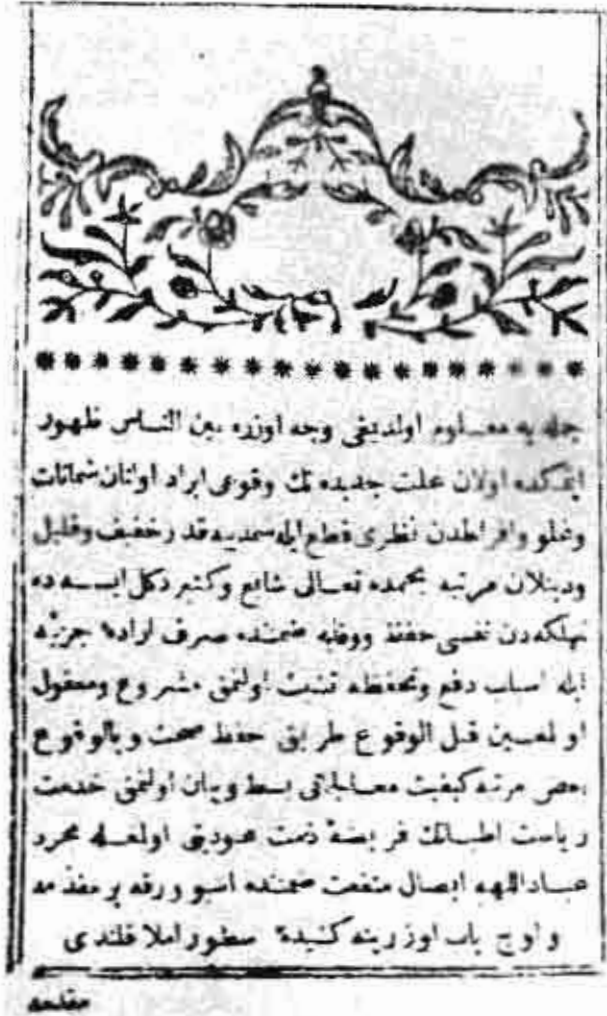 جمله يه معلوم اولديغى وجه اوزره بين الناس ظهور
ايتمكده اولان علت جديده نك وقوعى ايراد اولنان شماتات
وغلو وافراطدن نظرى قطع ايله شمديه قدر خفيف وقليل
ودينلان مرتبه بحمده تعالى شايع وكثير دكل ايسه ده
تهلكه دن نفسى حفظ ووقايه ضمننده صرف اراده جزئيه
ايله اسباب دفع وتحفظه تشبث اولنمق مشروع ومعقول
اولمغين قبل الوقوع طريق حفظ صحت وبالوقوع
بعض مرتبه كيفيت معالجاتى بسط وبيان اولنمق خدمت
رياست اطبانك فريضهٔ ذمت عبوديتى اولمغله مجرد
عباد اللهه ايصال منفعت ضمننده اشبو ورقه بر مقدمه
واوچ باب اوزرينه كشيدهٔ سطور املا قلندى
مقدمه